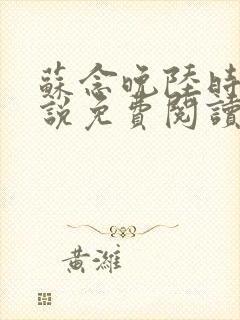 蘇念晚陸時
說免費閱讀
黃濰